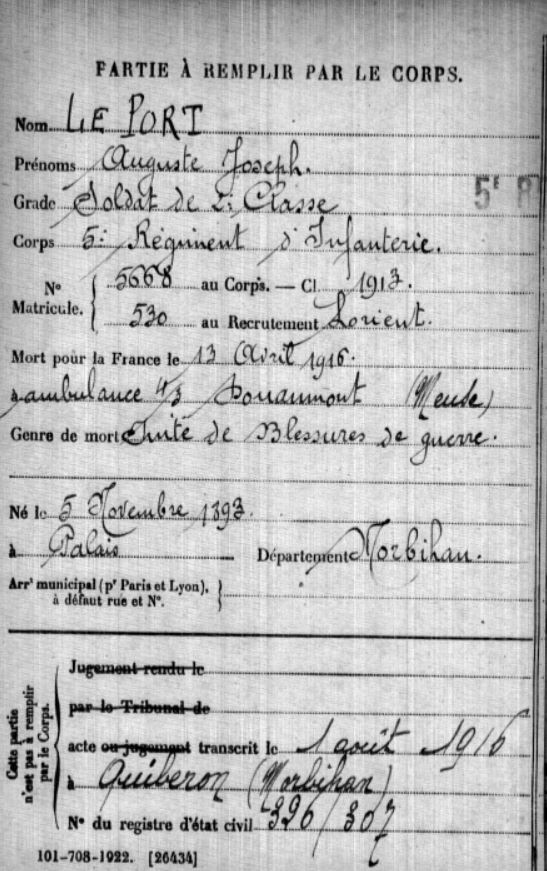 PARTIE À REMPLIR PAR LE CORPS.
Nom LE PORT
Prénoms Auguste Joseph.
Grade Soldat de 2e Classe
5e R
Corps 5e Régiment d'Infanterie.
N° Matricule. { 5668 au Corps. — Cl. 1913.
530 au Recrutement Lorient.
Mort pour la France le 13 Avril 1916.
à ambulance 4/3 Douaumont (Meuse)
Genre de mort Suite de Blessures de guerre.
Né le 5 Novembre 1893.
à Palais Département Morbihan.
Arrt municipal (pr Paris et Lyon), à défaut rue et N°. }
Cette partie n'est pas à remplir par le Corps.
Jugement rendu le
par le Tribunal de
acte ou jugement transcrit le 1 août 1916
à Quiberon (Morbihan)
N° du registre d'état civil 326/307
101-708-1922. [26434]